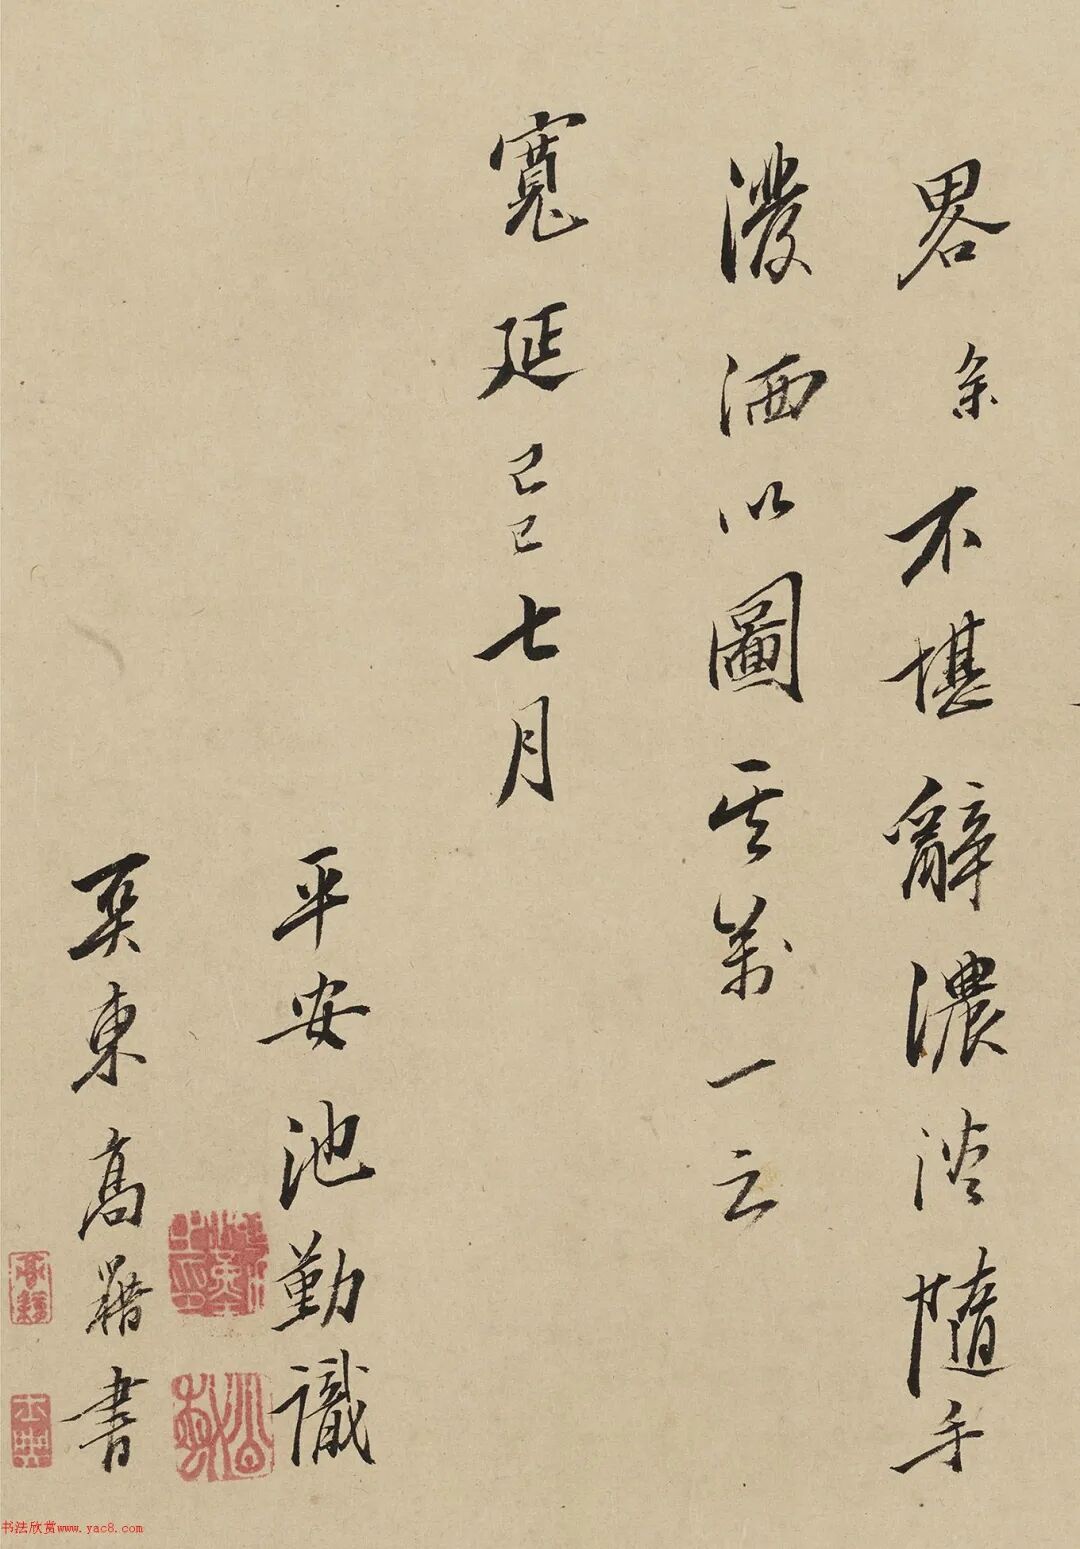 畧余不堪辭濃淡隨手
潑洒以圖其萬一云
寬延己巳七月
平安池勤識
吴東高籍書
书法欣赏www.yac8.com